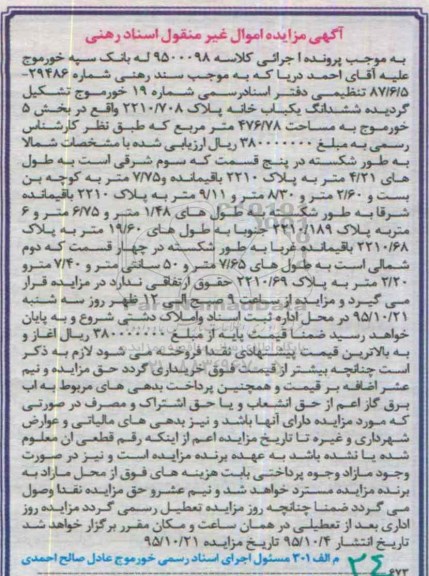 آگهی مزایده اموال غیر منقول اسناد رهنی
به موجب پرونده اجرائی کلاسه 9500098 له بانک سپه خورموج
علیه آقای احمد دریا که به موجب سند رهنی شماره 29486-
87/6/5 تنظیمی دفتر اسنادرسمی شماره 19 خورموج تشکیل
گردیده ششدانگ یکباب خانه پلاک 2210/708 واقع در بخش 5
خورموج به مساحت 476/78 متر مربع که طبق نظر کارشناس
رسمی به مبلغ 380000000 ریال ارزیابی شده با مشخصات شمالا
به طور شکسته در پنج قسمت که سوم شرقی است به طول
های 4/21 متر به پلاک 2210 باقیمانده و 7/75 متر به کوچه بن
بست و 2/60 متر و 8/30 متر و 9/11 متر به پلاک 2210 باقیمانده
شرقا به طور شکسته به طول های 1/48 متر و 6/75 متر و 6
متربه پلاک 2210/189 جنوبا به طول های 19/60 متر به پلاک
2210/68 باقیمانده غربا به طور شکسته در چهار قسمت که دوم
شمالی است به طول های 7/65 متر و 50 سانتی متر و 7/40 مترو
2/20 متر به پلاک 2210/69 حقوق ارتفاقی ندارد در مزایده قرار
می گیرد و مزایده از ساعت 9 صبح الی 12 ظهر روز سه شنبه
95/10/21 در محل اداره ثبت اسناد واملاک دشتی شروع و به پایان
خواهد رسید ضمنا قیمت پایه از مبلغ ریال اغاز و
به بالاترین قیمت پیشنهادی نقدا فروخته می شود لازم به ذکر
است چنانچه بیشتر از قیمت فوق خریداری گردد حق مزایده و نیم
عشر اضافه بر قیمت و همچنین پرداخت بدهی های مربوط به اب
برق گاز اعم از حق انشعاب و یا حق اشتراک و مصرف در صورتی
که مورد مزایده دارای آنها باشد و نیز بدهی های مالیاتی و عوارض
شهرداری و غیره تا تاریخ مزایده اعم از اینکه رقم قطعی ان معلوم
شده یا نشده باشد به عهده برنده مزایده است و نیز در صورت
وجود مازاد وجوه پرداختی بابت هزینه های فوق از محل مازاد به
برنده مزایده مسترد خواهد شد و نیم عشرو حق مزایده نقدا وصول
می گردد ضمنا چنانچه روز مزایده تعطیل رسمی گردد مزایده روز
اداری بعد از تعطیلی در همان ساعت و مکان مقرر برگزار خواهد شد
تاریخ انتشار 95/10/4 تاریخ مزایده 95/10/21
م الف 301 مسئول اجرای اسناد رسمی خورموج عادل صالح احمدی
24
673